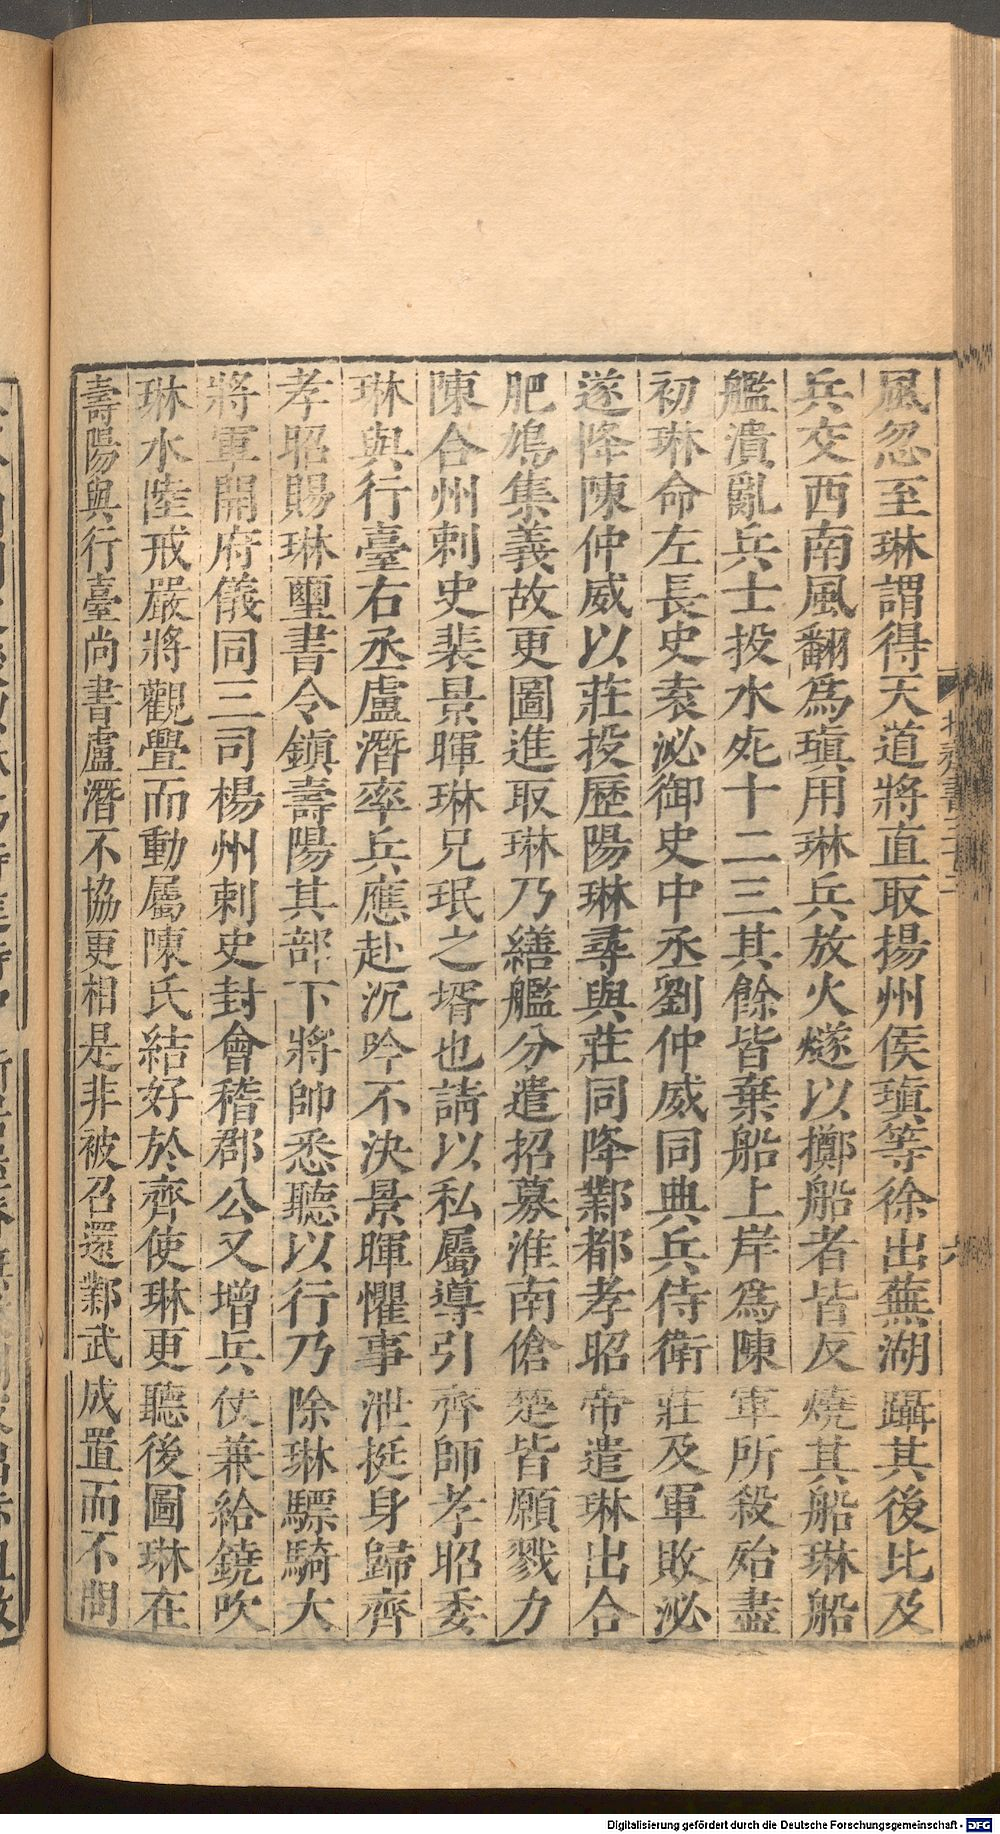 風忽至琳謂得天道將直取揚州侯瑱等徐出蕪湖躡其後比及
兵交西南風翻為瑱用琳兵放火燧以擲船者皆反燒其船琳船
艦潰亂兵士投水死十二三其餘皆棄船上岸為陳軍所殺殆盡
初琳命左長史袁泌御史中丞劉仲威同典兵侍衛莊及軍敗泌
遂降陳仲威以莊投歷陽琳尋與莊同降鄴都孝昭帝遣琳出合
肥鳩集義故更圖進取琳乃繕艦分遣招募淮南傖楚皆願戮力
陳合州刺史裴景暉琳兄珉之壻也請以私屬導引齊師孝昭委
琳與行臺右丞盧潛率兵應赴沉吟不決景暉懼事泄挺身歸齊
孝昭賜琳璽書令鎮壽陽其部下將帥悉聽以行乃除琳驃騎大
將軍開府儀同三司楊州刺史封會稽郡公又增兵仗兼給鐃吹
琳水陸戒嚴將觀釁而動屬陳氏結好於齊使琳更聽後圖琳在
壽陽與行臺尚書盧潛不協更相是非被召還鄴武成置而不問
北齊書三十二
六
Digitalisierung gefördert durch die Deutsche Forschungsgemeinschaft - DFG